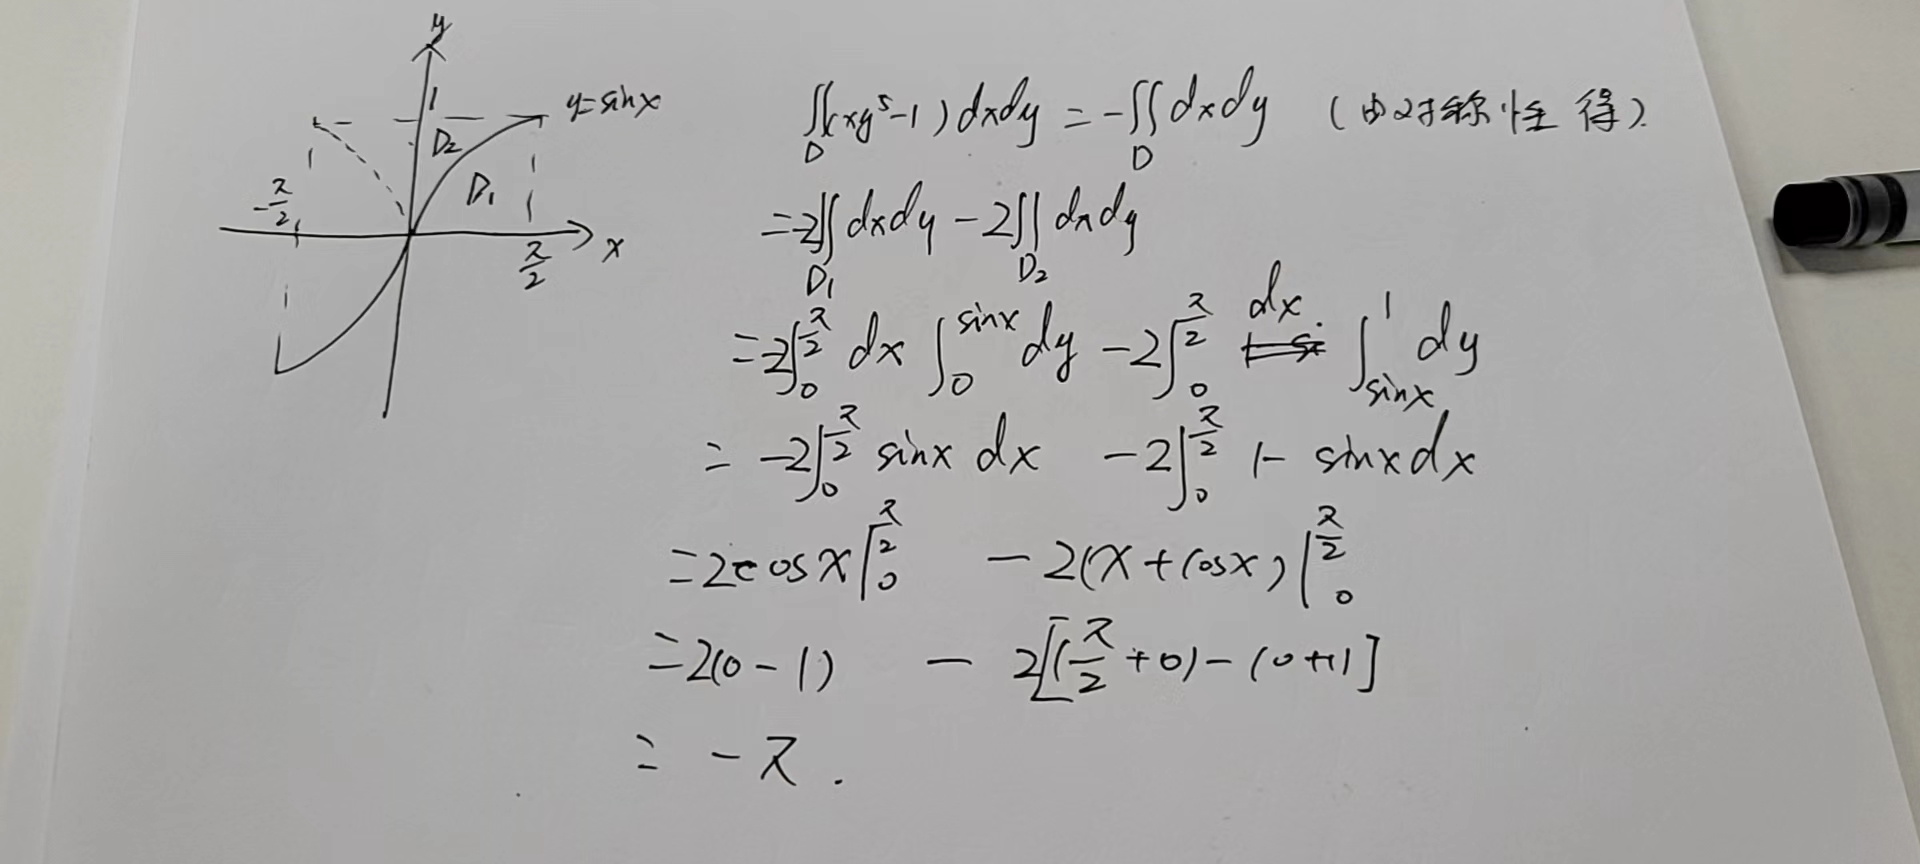 y
1
y=sinx
D₂
D₁
-π/2
π/2
x
∬_D (xy⁵-1)dxdy = -∬_D dxdy (由对称性得)
=-2∬_D₁ dxdy -2∬_D₂ dxdy
=-2∫_0^{π/2} dx ∫_0^{sinx} dy -2∫_0^{π/2} dx ∫_{sinx}^1 dy
= -2∫_0^{π/2} sinx dx -2∫_0^{π/2} 1- sinxdx
=2cosx|_0^{π/2} -2(x+cosx)|_0^{π/2}
=2(0-1) - 2[(π/2+0)-(0+1]
= -π.